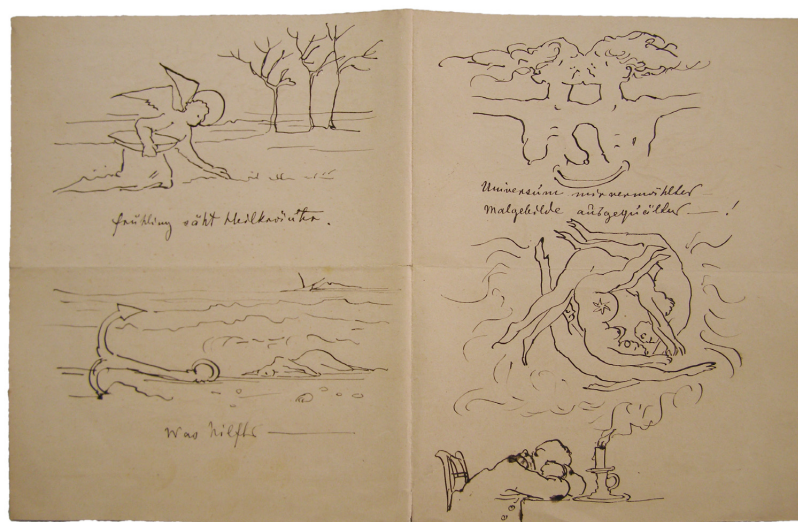 Frühling säht Heilkräuter.
Was hilfts
Universum mir vermählter
Malgebilde ausgequälter — !